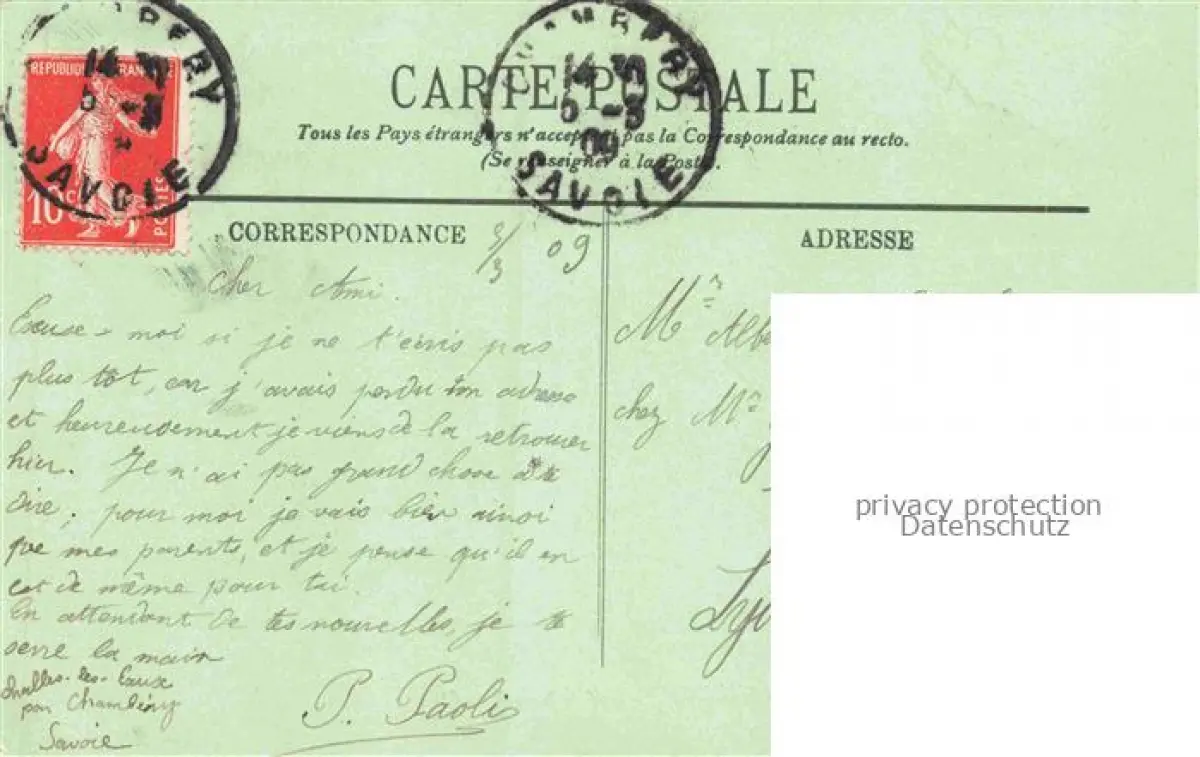 CHAMBERY
14 35
5 -3
SAVOIE
REPUBLIQUE FRANCAISE
10 c
POSTES
CHAMBERY
14 35
5 -3
09
SAVOIE
CARTE POSTALE
Tous les Pays étrangers n'acceptent pas la Correspondance au recto.
(Se renseigner à la Poste).
CORRESPONDANCE
3/3 09
Cher Ami.
Excuse-moi si je ne t'écris pas
plus tôt, car j'avais perdu ton adresse
et heureusement je viens de la retrouver
hier. Je n'ai pas grand chose à te
dire; pour moi je vais bien ainsi
que mes parents, et je pense qu'il en
est de même pour toi.
En attendant de tes nouvelles, je te
serre la main
P. Paoli
Challes-les-Eaux
par Chambéry
Savoie
ADRESSE
Mr Albe
chez Mr
Ly
privacy protection
Datenschutz